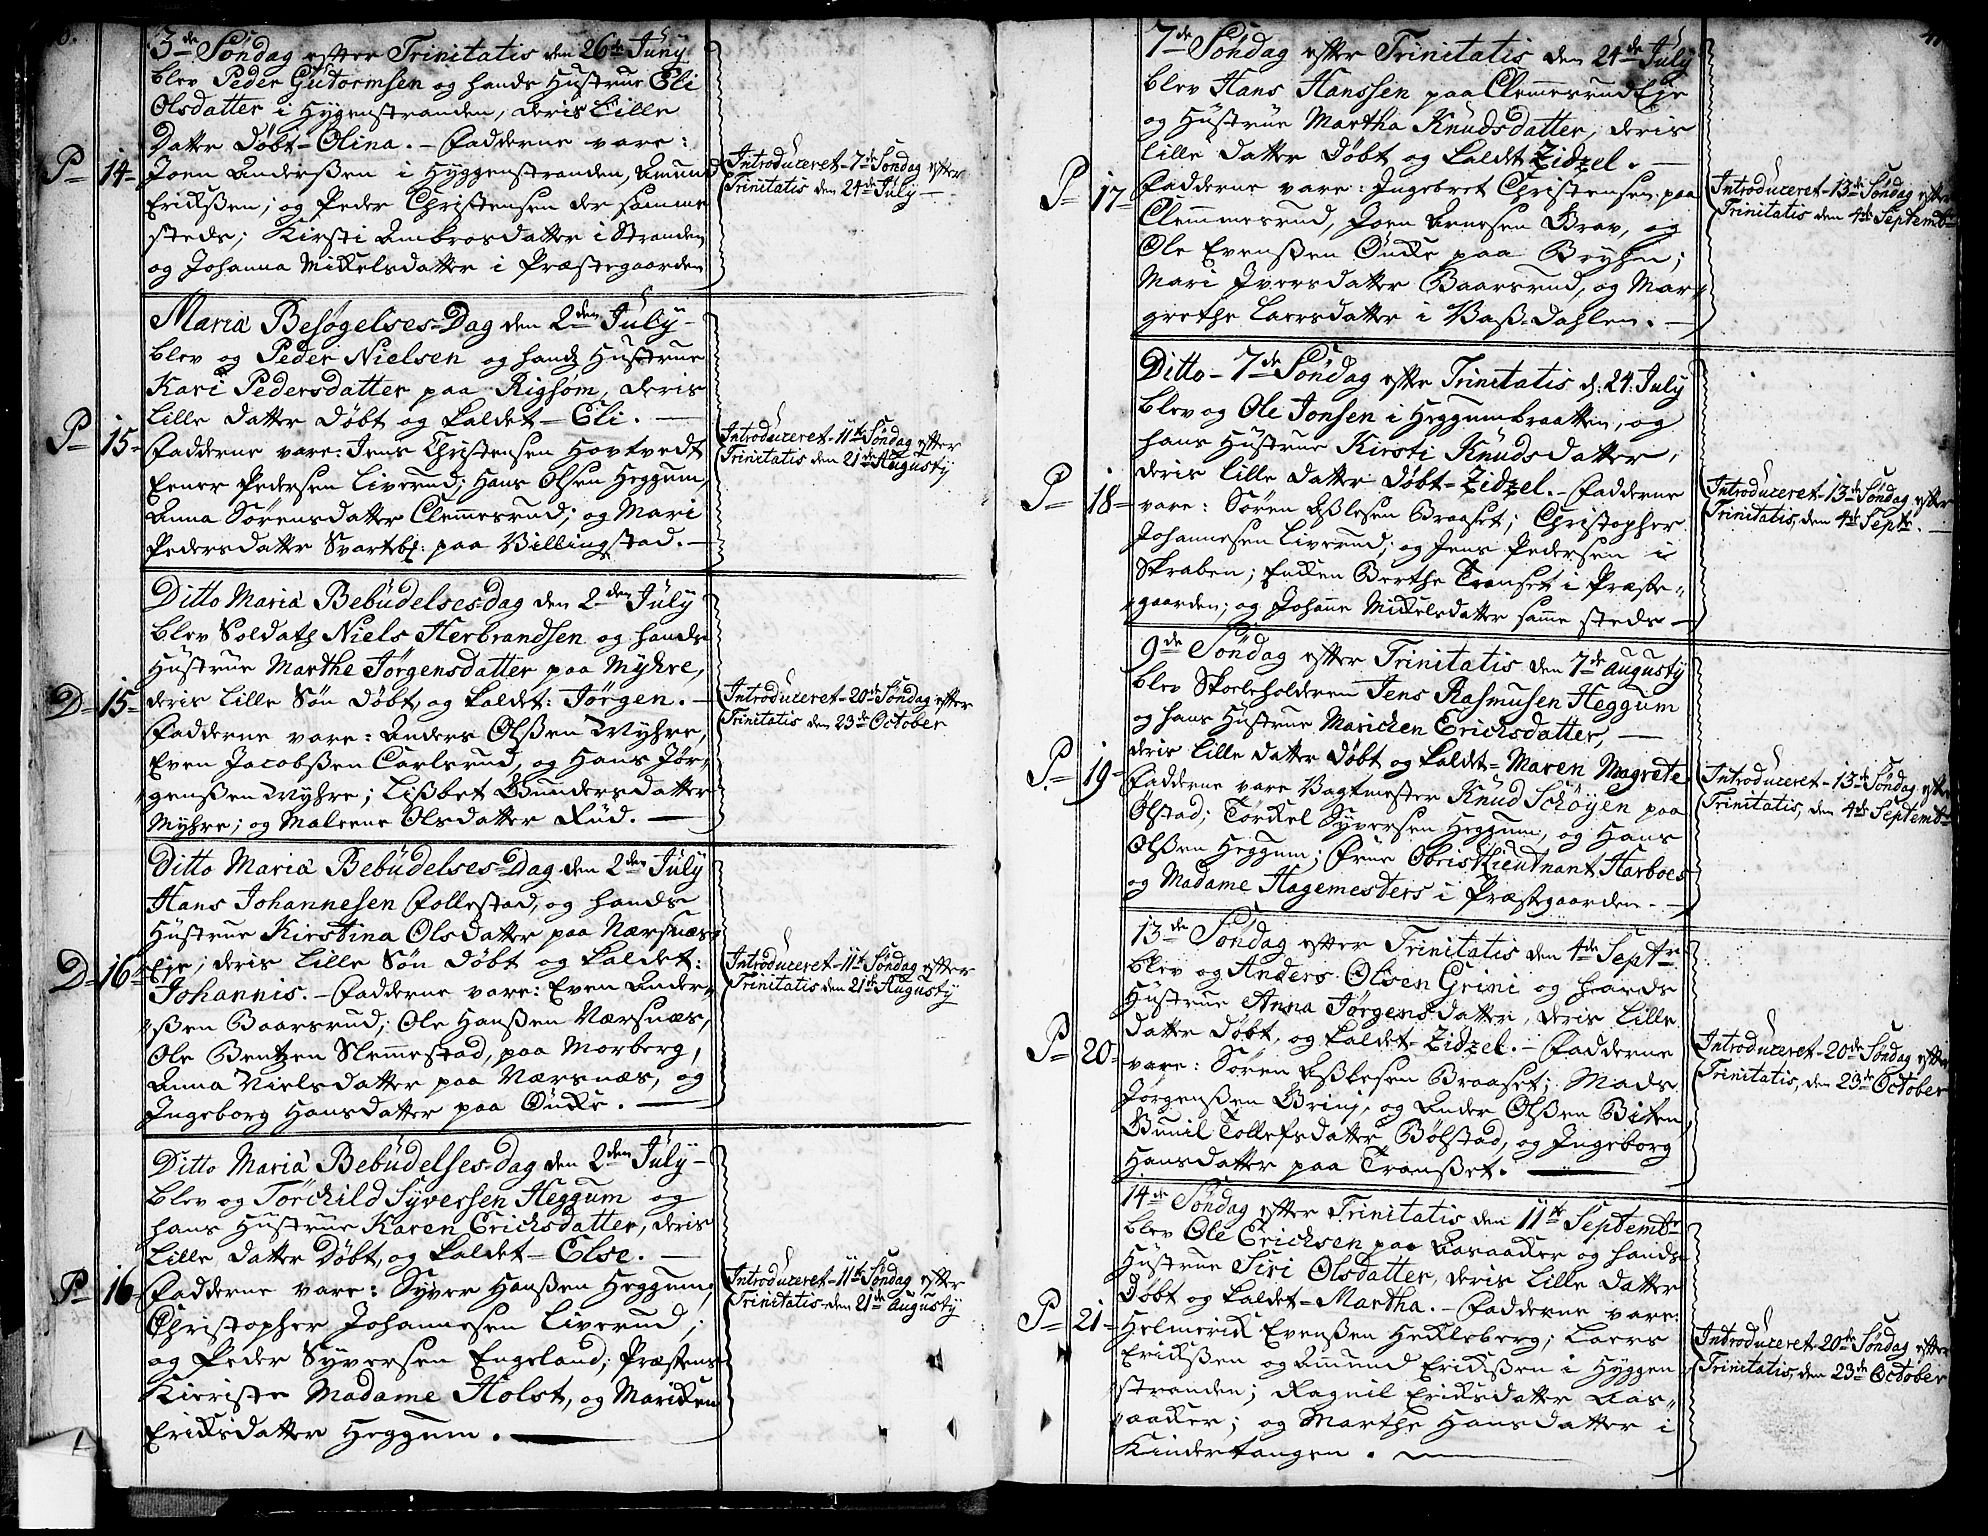 3de Søndag efter Trinitatis den 26de Juny
blev Peder Gutormsen og hands Hustrue Eli
Olsdatter i Hygenstranden, deris Lille
Datter Døbt - Olina. - Fadderne vare:
P 14 Joen Anderßen i Hyggenstranden, Amund
Erichßen; og Peder Christensen der samme
steds; Kirsti Ambrosdatter i Stranden
og Johanna Mickelsdatter i Præstegaarden
Introduceret - 7de Søndag efter
Trinitatis den 24de July -
Maria Besøgelses-Dag den 2den July -
blev og Peder Nielsen og hands Hustrue
Kari Pedersdatter paa Rigsøm, deris
Lille datter døbt og kaldet - Eli.
P 15 Fadderne vare: Jens Christensen Hovtvedt
Ener Pedersen Liverud; Hans Olsen Heggum,
Anna Sørensdatter Clemmesrud; og Mari
Pedersdatter paa Billingstad.
Introduceret - 11te Søndag efter
Trinitatis den 21de Augusty
Ditto Maria Bebudelses-dag den 2den July
blev Soldat Niels Herbrandsen og hands
Hustrue Marthe Jørgensdatter paa Myhre,
D 15 deris Lille Søn døbt, og kaldet: Jørgen. -
Fadderne vare: Anders Olßen Myhre,
Even Jacobßen Carlsrud, og Hans Jør-
genßen Myhre; Lisbet Gundersdatter
Myhre; og Maleene Olsdatter Rud.
Introduceret - 20de Søndag efter
Trinitatis den 23de October
Ditto Maria Bebudelses-Dag den 2den July
Hans Johannesen Follestad, og hands
Hustrue Kirstina Olsdatter paa Nærsnæs
D 16 Eje; deris Lille Søn døbt og kaldet:
Johannis. - Fadderne vare: Even Ander-
ßen Baarsrud; Ole Hanßen Nærsnæs,
Ole Bentzen Slemmestad, paa Morberg,
Anna Nielsdatter paa Nærsnæs, og
Ingeborg Hansdatter paa Ønche.
Introduceret - 11te Søndag efter
Trinitatis den 21de Augusty
Ditto Maria Bebudelses-dag den 2den July -
blev og Torchild Syversen Heggum og
hans Hustrue Karen Erichsdatter, deris
Lille datter Døbt, og kaldet - Else. -
P 16 Fadderne vare: Syver Hanßen Heggum;
Christopher Johannesen Liverud;
og Peder Syversen Engeland; Præstens
Kieriste Madame Holst, og Mariken
Ericksdatter Heggum.
Introduceret - 11te Søndag efter
Trinitatis den 21de Augusty
7de Søndag efter Trinitatis den 24de July
blev Hans Hanssen paa Clemmesrud Eje
og Hustrue Martha Knudsdatter, deris
Lille datter døbt og kaldet Zidzel. -
P 17 Fadderne vare: Ingebret Christensen paa
Clemmesrud, Joen Arnesen Brav, og
Ole Evenßen Ønche paa Bryhn;
Mari Iversdatter Baarsrud, og Mar-
grethe Larsdatter i Baß-dahlen. -
Introduceret - 13de Søndag efter
Trinitatis den 4de Septemb
Ditto - 7de Søndag efter Trinitatis d: 24. July
blev og Ole Jonsen i Heggumbraatten, og
hans Hustrue Kirsti Knudsdatter,
deris Lille datter Døbt - Zidzel. - Fadderne
P 18 vare: Søren Aßlesen Braaset; Christopher
Johannesen Liverud, og Jens Pedersen i
Skraben; Encken Berthe Transet i Præste-
gaarden; og Johane Mickelsdatter samme steds -
Introduceret - 13de Søndag efter
Trinitatis, den 4de Septr. -
9de Søndag efter Trinitatis den 7de augusty
blev Skoeleholderen Jens Rasmusen Heggum
og hans Hustrue Marichen Erichsdatter, -
deris Lille datter Døbt og kaldet - Maren Magrete
P 19 Fadderne vare Vagtmester Knud Schøyen paa
Ølstad; Torkel Syversen Heggum, og Hans
Olßen Heggum; Frue Obristlieutnant Harboes
og Madame Hagemesters i Præstegaarden. -
Introduceret - 13de Søndag efter
Trinitatis, den 4de Septemb
13de Søndag efter Trinitatis den 4de Septr
blev og Anders Olsen Grini og hands
Hustrue Anna Jørgensdatter, deris Lille
datter Døbt, og kaldet - Zidzel. - Fadderne
P 20 vare: Søren Aßlesen Braaset; Mads
Jørgenßen Grinj, og Ander Olßen Biten
Gunil Tollefsdatter Bølstad, og Ingeborg
Hansdatter paa Tranßet.
Introduceret - 20de Søndag efter
Trinitatis, den 23de October
14de Søndag efter Trinitatis den 11te Septembr
blev Ole Erichsen paa Aasaaker og hands
Hustrue Siri Olsdatter, deris Lille datter
Døbt og kaldet - Martha. - Fadderne vare:
P 21 Helmerick Evenßen Heckleberg; Laers
Erickßen og Amund Erickßen i Hyggen
stranden; Ragnil Ericksdatter Aas-
aaker; og Marthe Hansdatter i
Kindertangen.
Introduceret 20de Søndag efter
Trinitatis, den 23de October